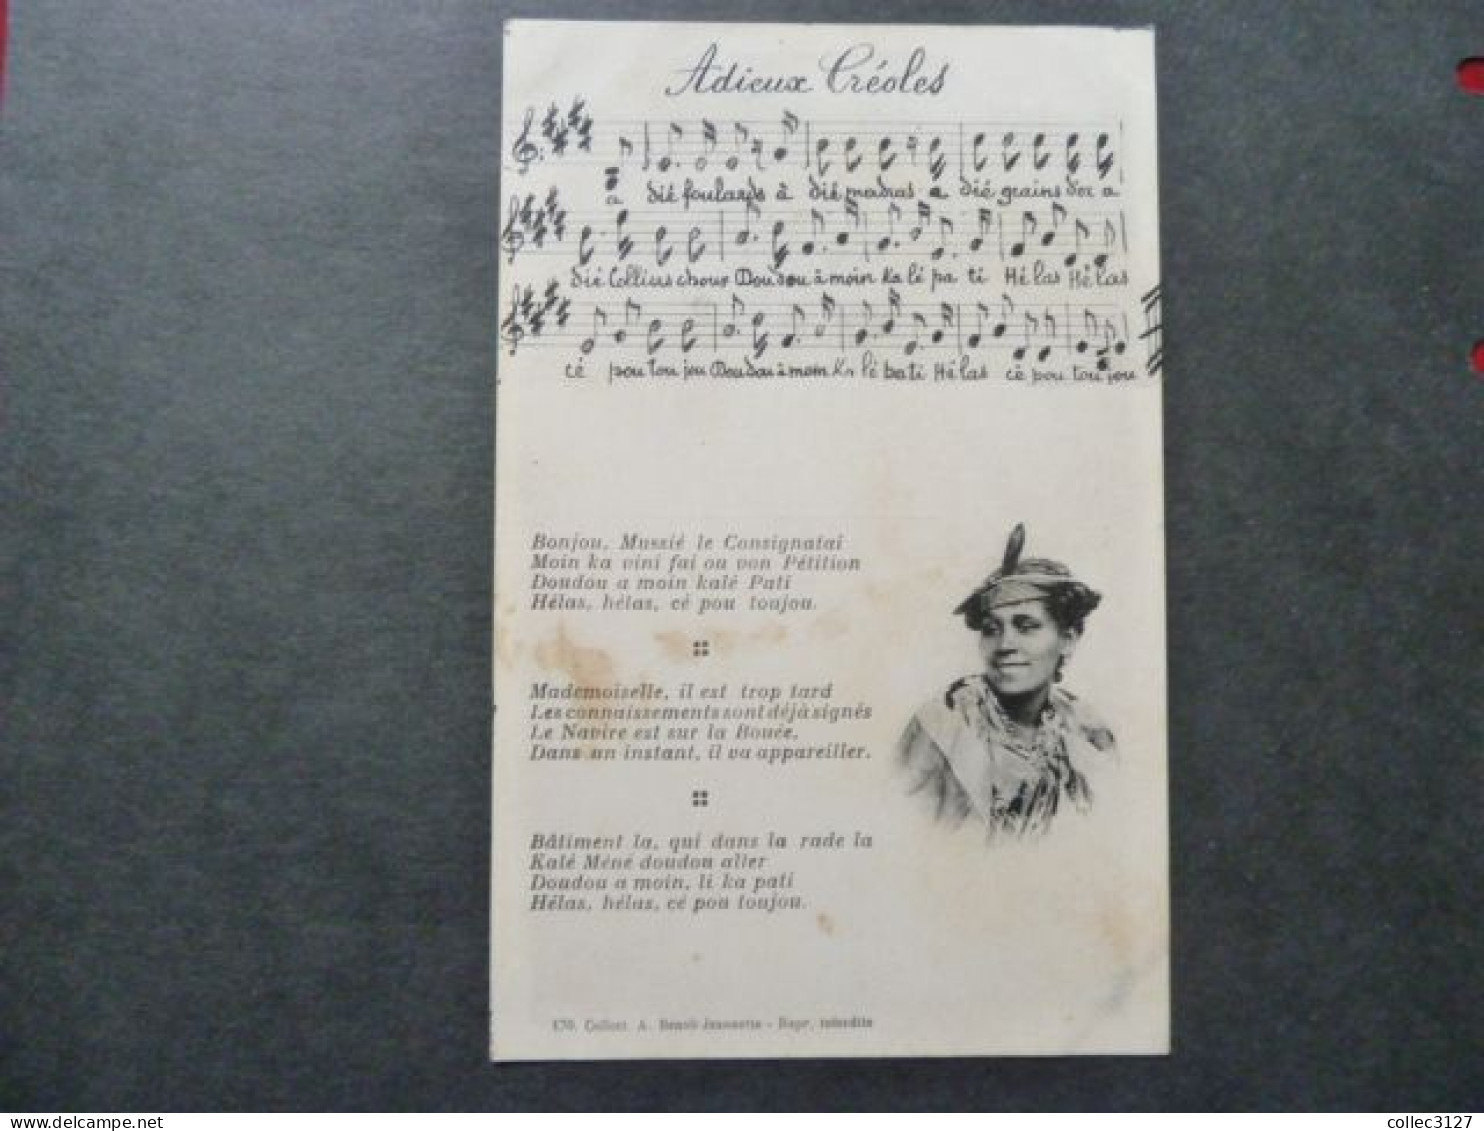 Adieux Créoles
a dié foulards à dié madras a dié grains d'or a
dié Colliers choux Doudou à moin Ka lé pa ti Hé las Hé las
cé pou tou jou Doudou à moin Ka lé pati Hé las cé pou tou jou
Bonjou, Mussié le Consignatai
Moin ka vini fai ou von Pétition
Doudou a moin kalé Pati
Hélas, hélas, cé pou toujou.
Mademoiselle, il est trop tard
Les connaissements sont déjà signés
Le Navire est sur la Bouée,
Dans un instant, il va appareiller.
Bâtiment la, qui dans la rade la
Kalé Méné doudou aller
Doudou a moin, li ka pati
Hélas, hélas, cé pou toujou.
170. Collect. A. Benoit-Jeannette - Repr. interdite
collec3127